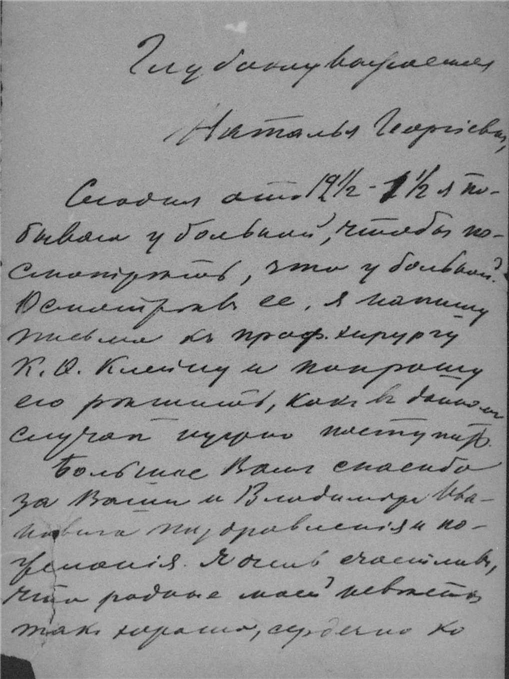 Глубокоуважаемая
Наталья Георгіевна,
Сегодня отъ 12 1/2 - 1 1/2 я по-
бываю у больной, чтобы по-
смотрѣть, что у больной.
Осмотрѣвъ ее, я напишу
письмо къ проф. хирургу
К. Ө. Клейну и попрошу
его рѣшить, какъ въ данномъ
случаѣ нужно поступить.
Большое Вамъ спасибо
за Ваши и Владимира Ива-
новича поздравленія и по-
желанія. Я очень счастливъ,
что родные моей невѣсты
такъ хорошо, сердечно ко